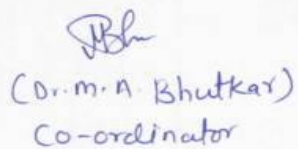 (Dr. M. A. Bhutkar)
Co-ordinator